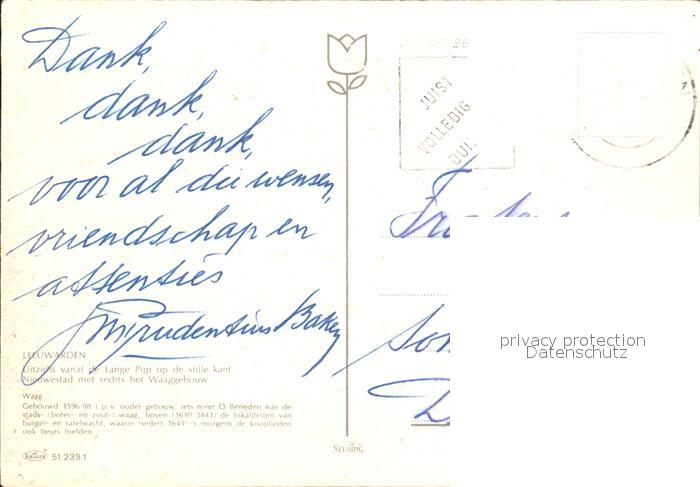 Dank,
dank,
dank,
voor al die wensen,
vriendschap en
attenties
Prudentius
LEEUWARDEN
Uitzicht vanaf de Lange Pijp op de stille kant
Nieuwestad met rechts het Waaggebouw
Waag
Gebouwd 1596-98 i.p.v. ouder gebouw, iets meer O. Beneden was de
stads- (boter- en zout-) waag, boven (1630-1841) de lokaliteiten van
burger- en ratelwacht, waarin (sedert 1643) 's morgens de kooplieden
ook beurs hielden.
51.239.1
JUIST
VOLLEDIG
privacy protection
Datenschutz